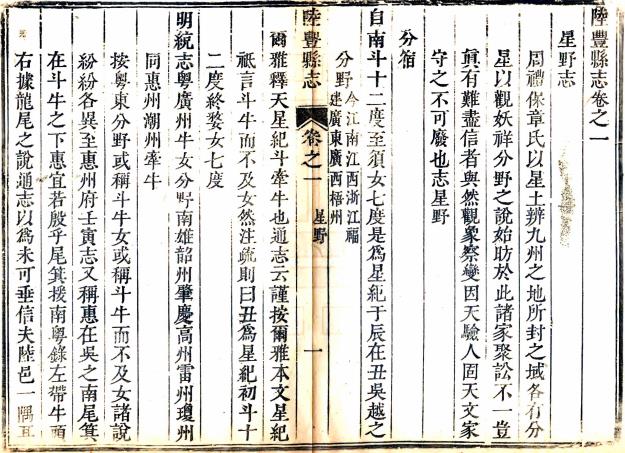 陸豐縣志卷之一
星野志
周禮保章氏以星土辨九州之地所封之域各有分
星以觀妖祥分野之說始昉於此諸家聚訟不一豈
眞有難盡信者與然觀象察變因天驗人固天文家
守之不可廢也志星野
分宿
自南斗十二度至須女七度是爲星紀于辰在丑吳越之
分野今江南江西浙江福
建廣東廣西梧州
陸豐縣志
卷之一
星野
一
爾雅釋天星紀斗牽牛也通志云謹按爾雅本文星紀
祇言斗牛而不及女然注疏則曰丑爲星紀初斗十
二度終婺女七度
明統志粵廣州牛女分野南雄韶州肇慶高州雷州瓊州
同惠州潮州牽牛
按粵東分野或稱斗牛女或稱斗牛而不及女諸說
紛紛各異至惠州府壬寅志又稱惠在吳之南尾箕
在斗牛之下惠宜若殷乎尾箕援南粵錄左帶牛頭
右據龍尾之說通志以爲未可垂信夫陸邑一隅耳